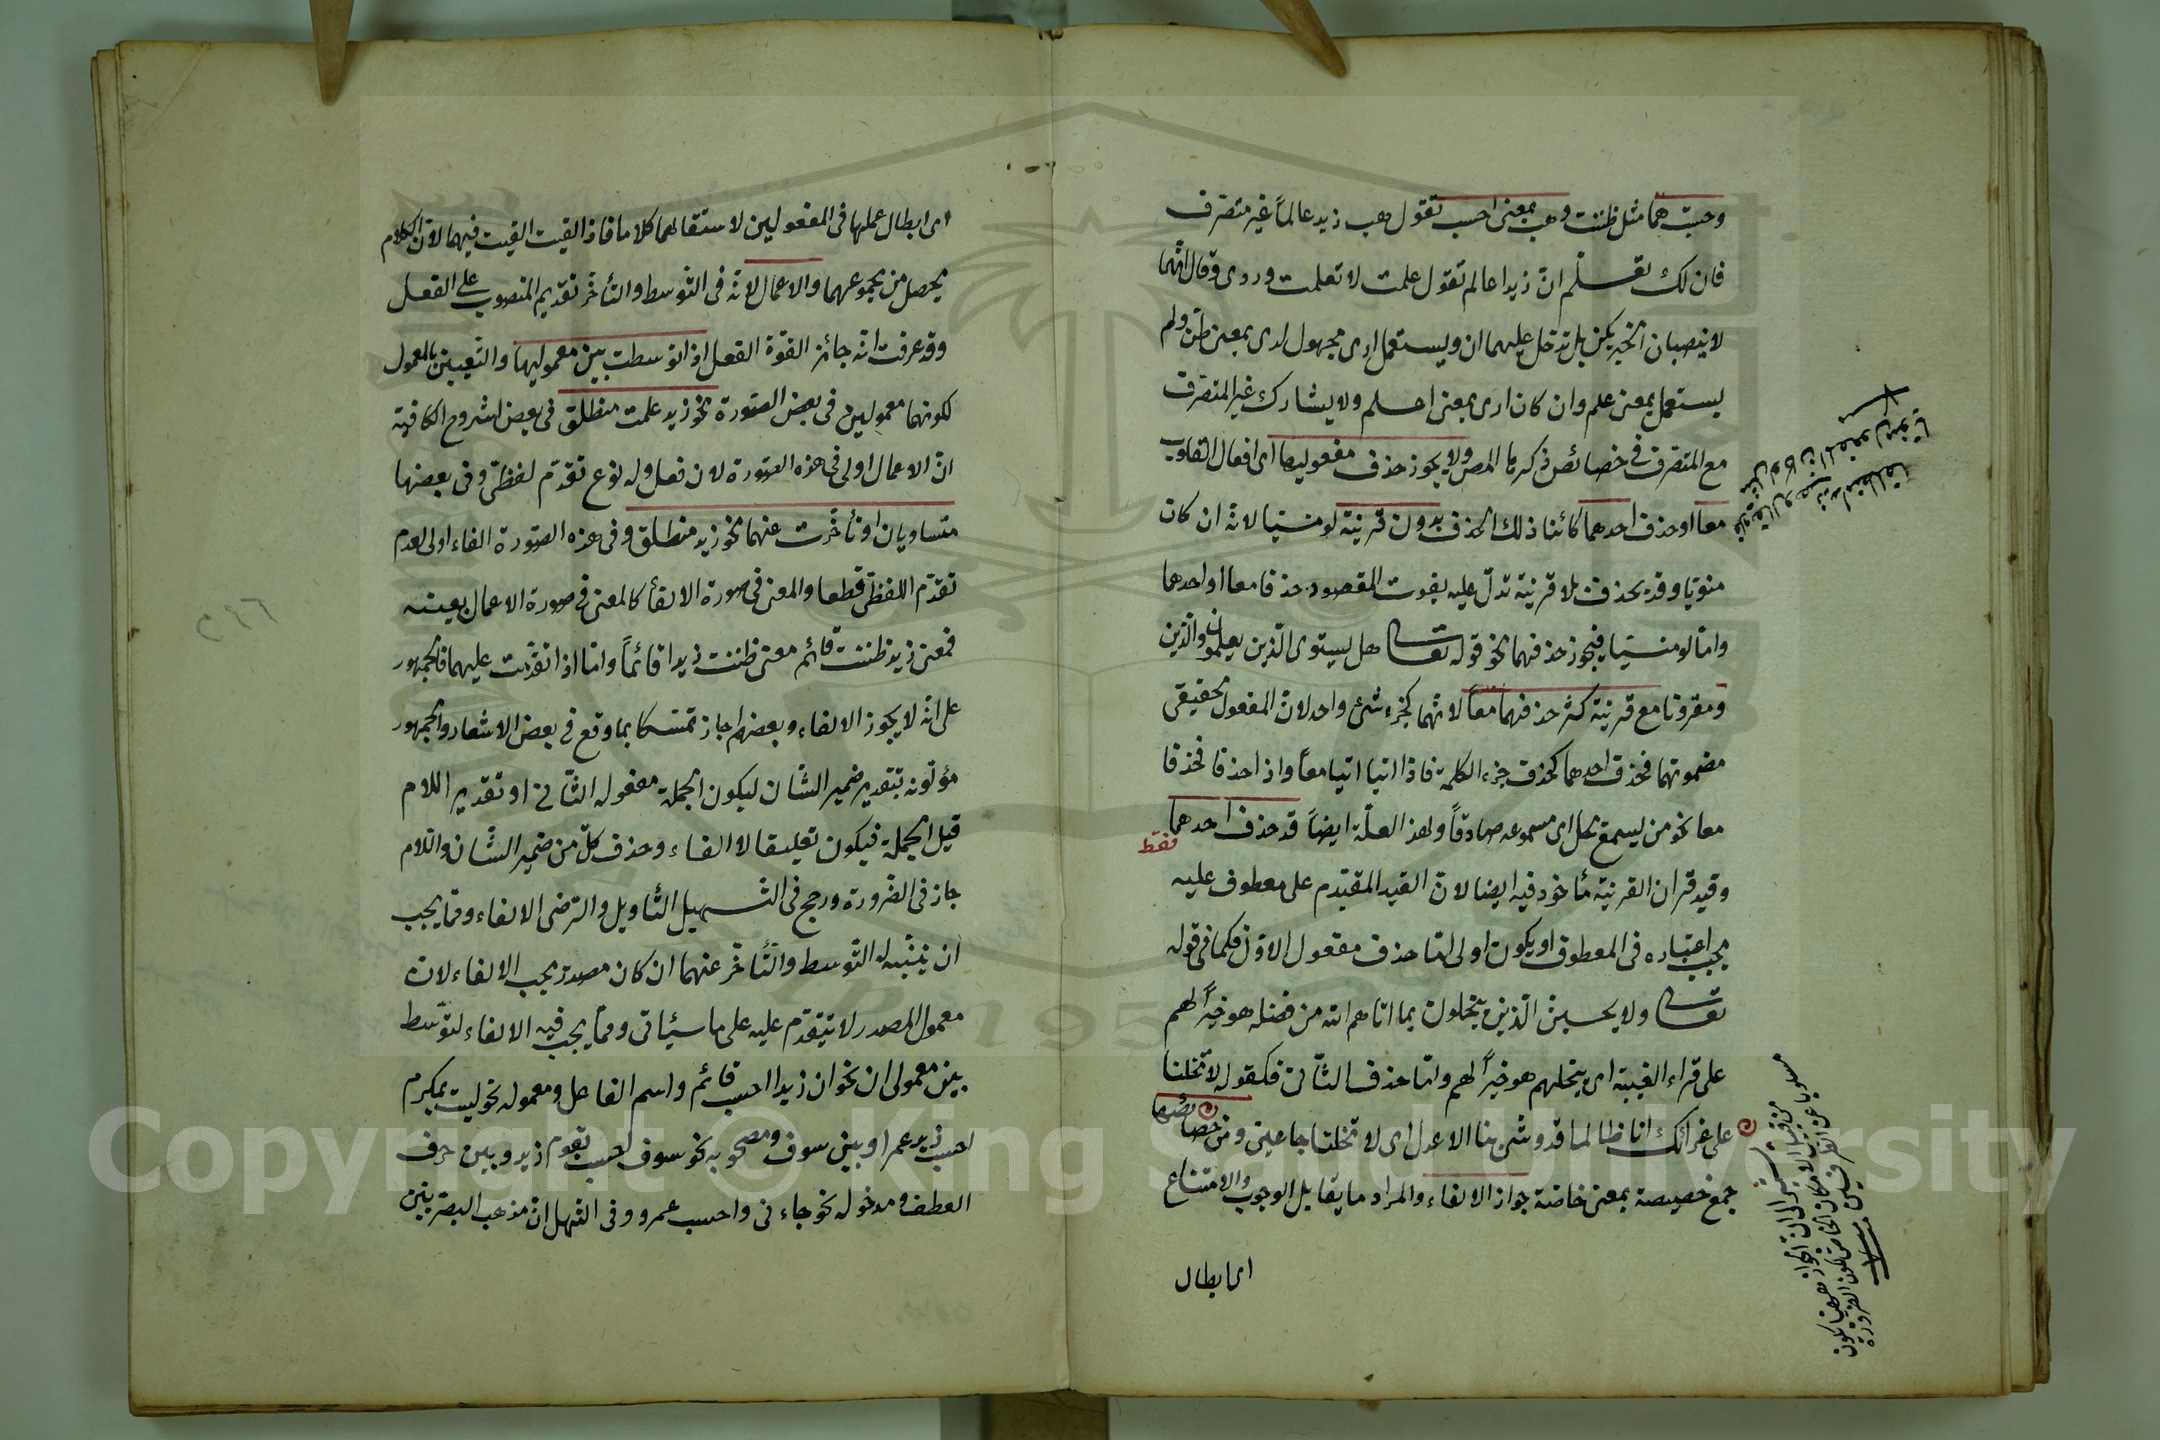 وحبت هما مثل ظننت وهب بمعنى احسب تقول هب زيد عالماً غير متصرف
فان لك تقـلم ان زيدا عالم تقول علمت لا تعلمت وردى وقال انهما
لا ينصبان الخبر يكن بل تدخل عليهما ان ويستعمل ارى مجهول ارى بمعنى ظن ولم
يستعمل بمعنى علم وان كان ارى بمعنى اعلم ولا يشارك غير المتصرف
مع المتصرف فى خصائص ذكرها المص ولا يجوز حذف مفعوليها اى افعال القلوب
معا او حذف احدهما كائنا ذلك الحذف بدون قرينة لو منسيا لانه ان كان
منويا وقد يحذف بلا قرينة تدل عليه يفوت المقصود حذفا معا او احدهما
واما لو منسيا فيجوز حذفهما نحو قوله تعالى هل يستوى الذين يعلمون والذين
ومقرونا مع قرينة كثر حذفهما معاً لانهما كجزء شئ واحد لان المفعول الحقيقى
مضمونهما فحذف احدهما كحذف جزء الكلمة فاذا اتيا اتيا معاً واذا حذفا فحذفا
معا نحو من يسمع يخل اى مسموعه صادقاً ولهذا العلة ايضاً قد حذف احدهما
فقط
وقيد قران القرينة مأخوذ فيه ايضا لان القيد المقدم على معطوف عليه
يجب اعتباره فى المعطوف او يكون اولى اما حذف مفعول الاول فكما فى قوله
تعالى ولا يحسبن الذين يبخلون بما اتاهم الله من فضله هو خيراً لهم
على قراء الغيبة اى بخلهم هو خيراً لهم واما حذف الثانى فكقوله لا تخلنا
على غرائك انا طالما قد وشى بنا الاعدا اى لا تخلنا جاعين ومن خصائصها
جمع خصيصة بمعنى خاصة جواز الالغاء والمراد ما يقابل الوجوب والامتناع
اى ابطال
اى ابطال عملها فى المفعولين لاستقالهما كلاما فاذا القيت القيت فيهما لان الكلام
يحصل من مجموعهما والاعمال لانه فى التوسط والتأخر تقديم المنصوب على الفعل
وقد عرفت انه جائز القوة الفعل اذا توسطت بين معموليها والتعبين بالمعمول
لكونهما معمولين فى بعض الصورة نحو زيد علمت منطلق فى بعض شروح الكافية
ان الاعمال اولى فى هذه الصورة لان فعل وله نوع تقدم لفظى وفى بعضها
متساويان او تأخرت عنهما نحو زيد منطلق وفى هذه الصورة الغاء اولى لعدم
تقدم اللفظى قطعا والمعنى فى صورة الالغأ كالمعنى فى صورة الاعمال بعينه
فمعنى زيد ظننت قائم معنى ظننت زيدا قائماً واما اذا تقدمت عليهما فالجمهور
على انه لا يجوز الالغاء وبعضهم اجاز تمسكا بما وقع فى بعض الاشعار والجمهور
مؤلونه بتقدير ضمير الشان ليكون الجملة مفعوله الثانى او تقدير اللام
قيل الجملة فيكون تعليقا لا الغاء وحذف كل من ضمير الشان واللام
جاز فى الضرورة ورجح فى التسهيل التأويل والرضى الالغاء ومما يجب
ان ينتبه له التوسط والتأخر عنهما ان كان مصدر يجب الالغاء لان
معمول المصدر لا يتقدم عليه على ما سيأتى ومما يجب فيه الالغاء لتوسط
بين معمولى ان نحو ان زيدا احسب قائم واسم الفاعل ومعموله نحو ليت بمكرم
احسب زيد عمرا وبين سوف ومصحوبه نحو سوف احسب يقوم زيد وبين حرف
العطف ومدخوله نحو جاءنى واحسب عمرو وفى التهل ان مذهب البصريين
يشير الى ان الجواز ههنا يكون
من قبيل الامكان الخاص يكون الضرورة
مسلوبا عن الطرفين
Copyright © King Saud University